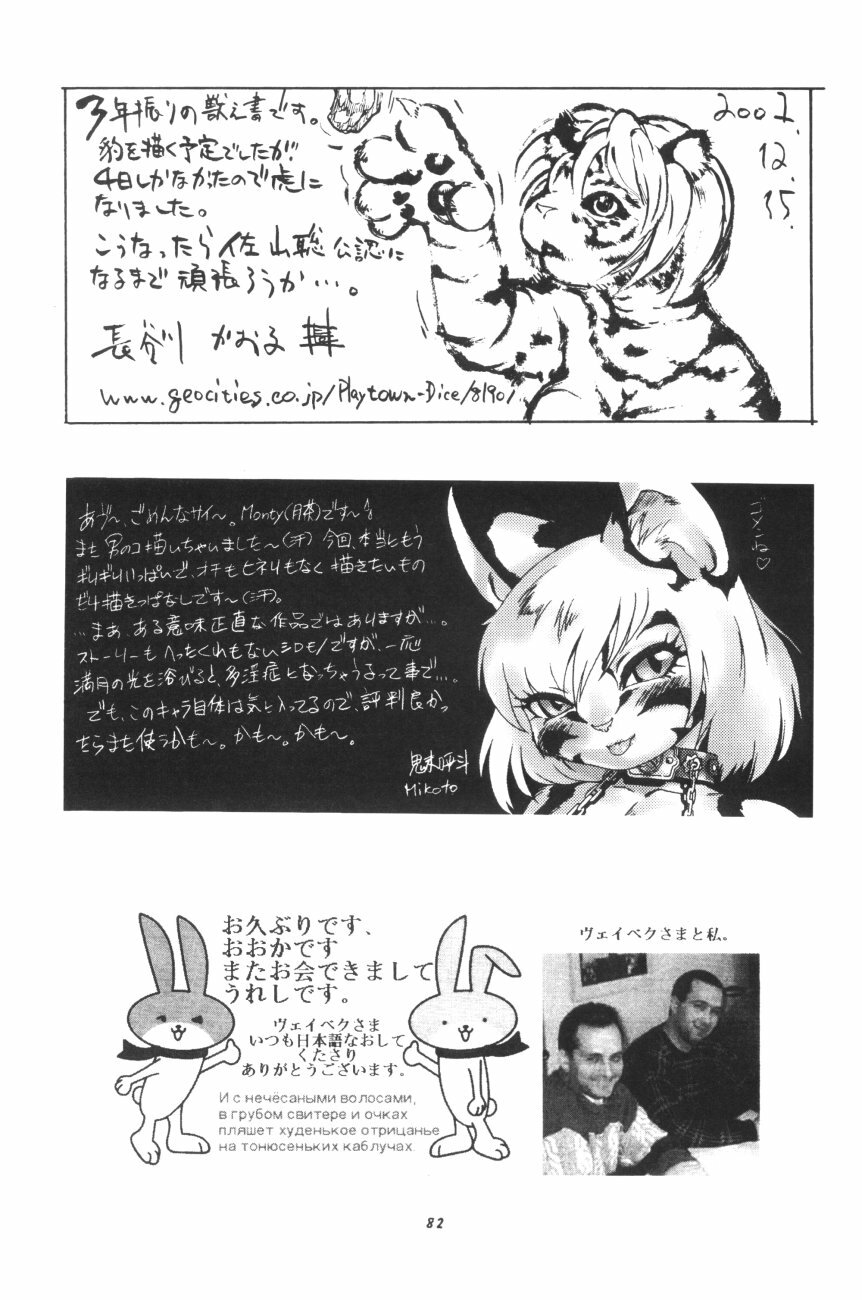 3年振りの獣え書です。
豹を描く予定でしたが
4日しかなかたので虎に
なりました。
こうなったら佐山聡公認に
なるまで頑張ろうか…。
長谷川 かおる
www.geocities.co.jp/Playtown-Dice/8190/
2002.
12.
15.
あヴ〜、ごめんなサイ〜。Monty(月茶)です〜
また男のコ描いちゃいました〜(汗) 今回、本当にもう
ギリギリいっぱいで、オチもヒネリもなく描きたいもの
だけ描きっぱなしです〜(汗)。
…まあ、ある意味正直な作品ではありますが…。
ストーリーもへったくれもないシロモノですが、一応
満月の光を浴びると、多淫症になっちゃうって事で…。
でも、このキャラ自体は気に入ってるので、評判良かっ
たらまた使うかも〜。かも〜。かも〜。
Mikoto
ゴメンね♡
お久ぶりです、
おおかです
またお会できまして
うれしです。
ヴェイベクさま
いつも日本語なおして
くたさり
ありがとうございます。
И с нечёсаными волосами,
в грубом свитере и очках
пляшет худенькое отрицанье
на тонюсеньких каблучах.
ヴェイベクさまと私。
82